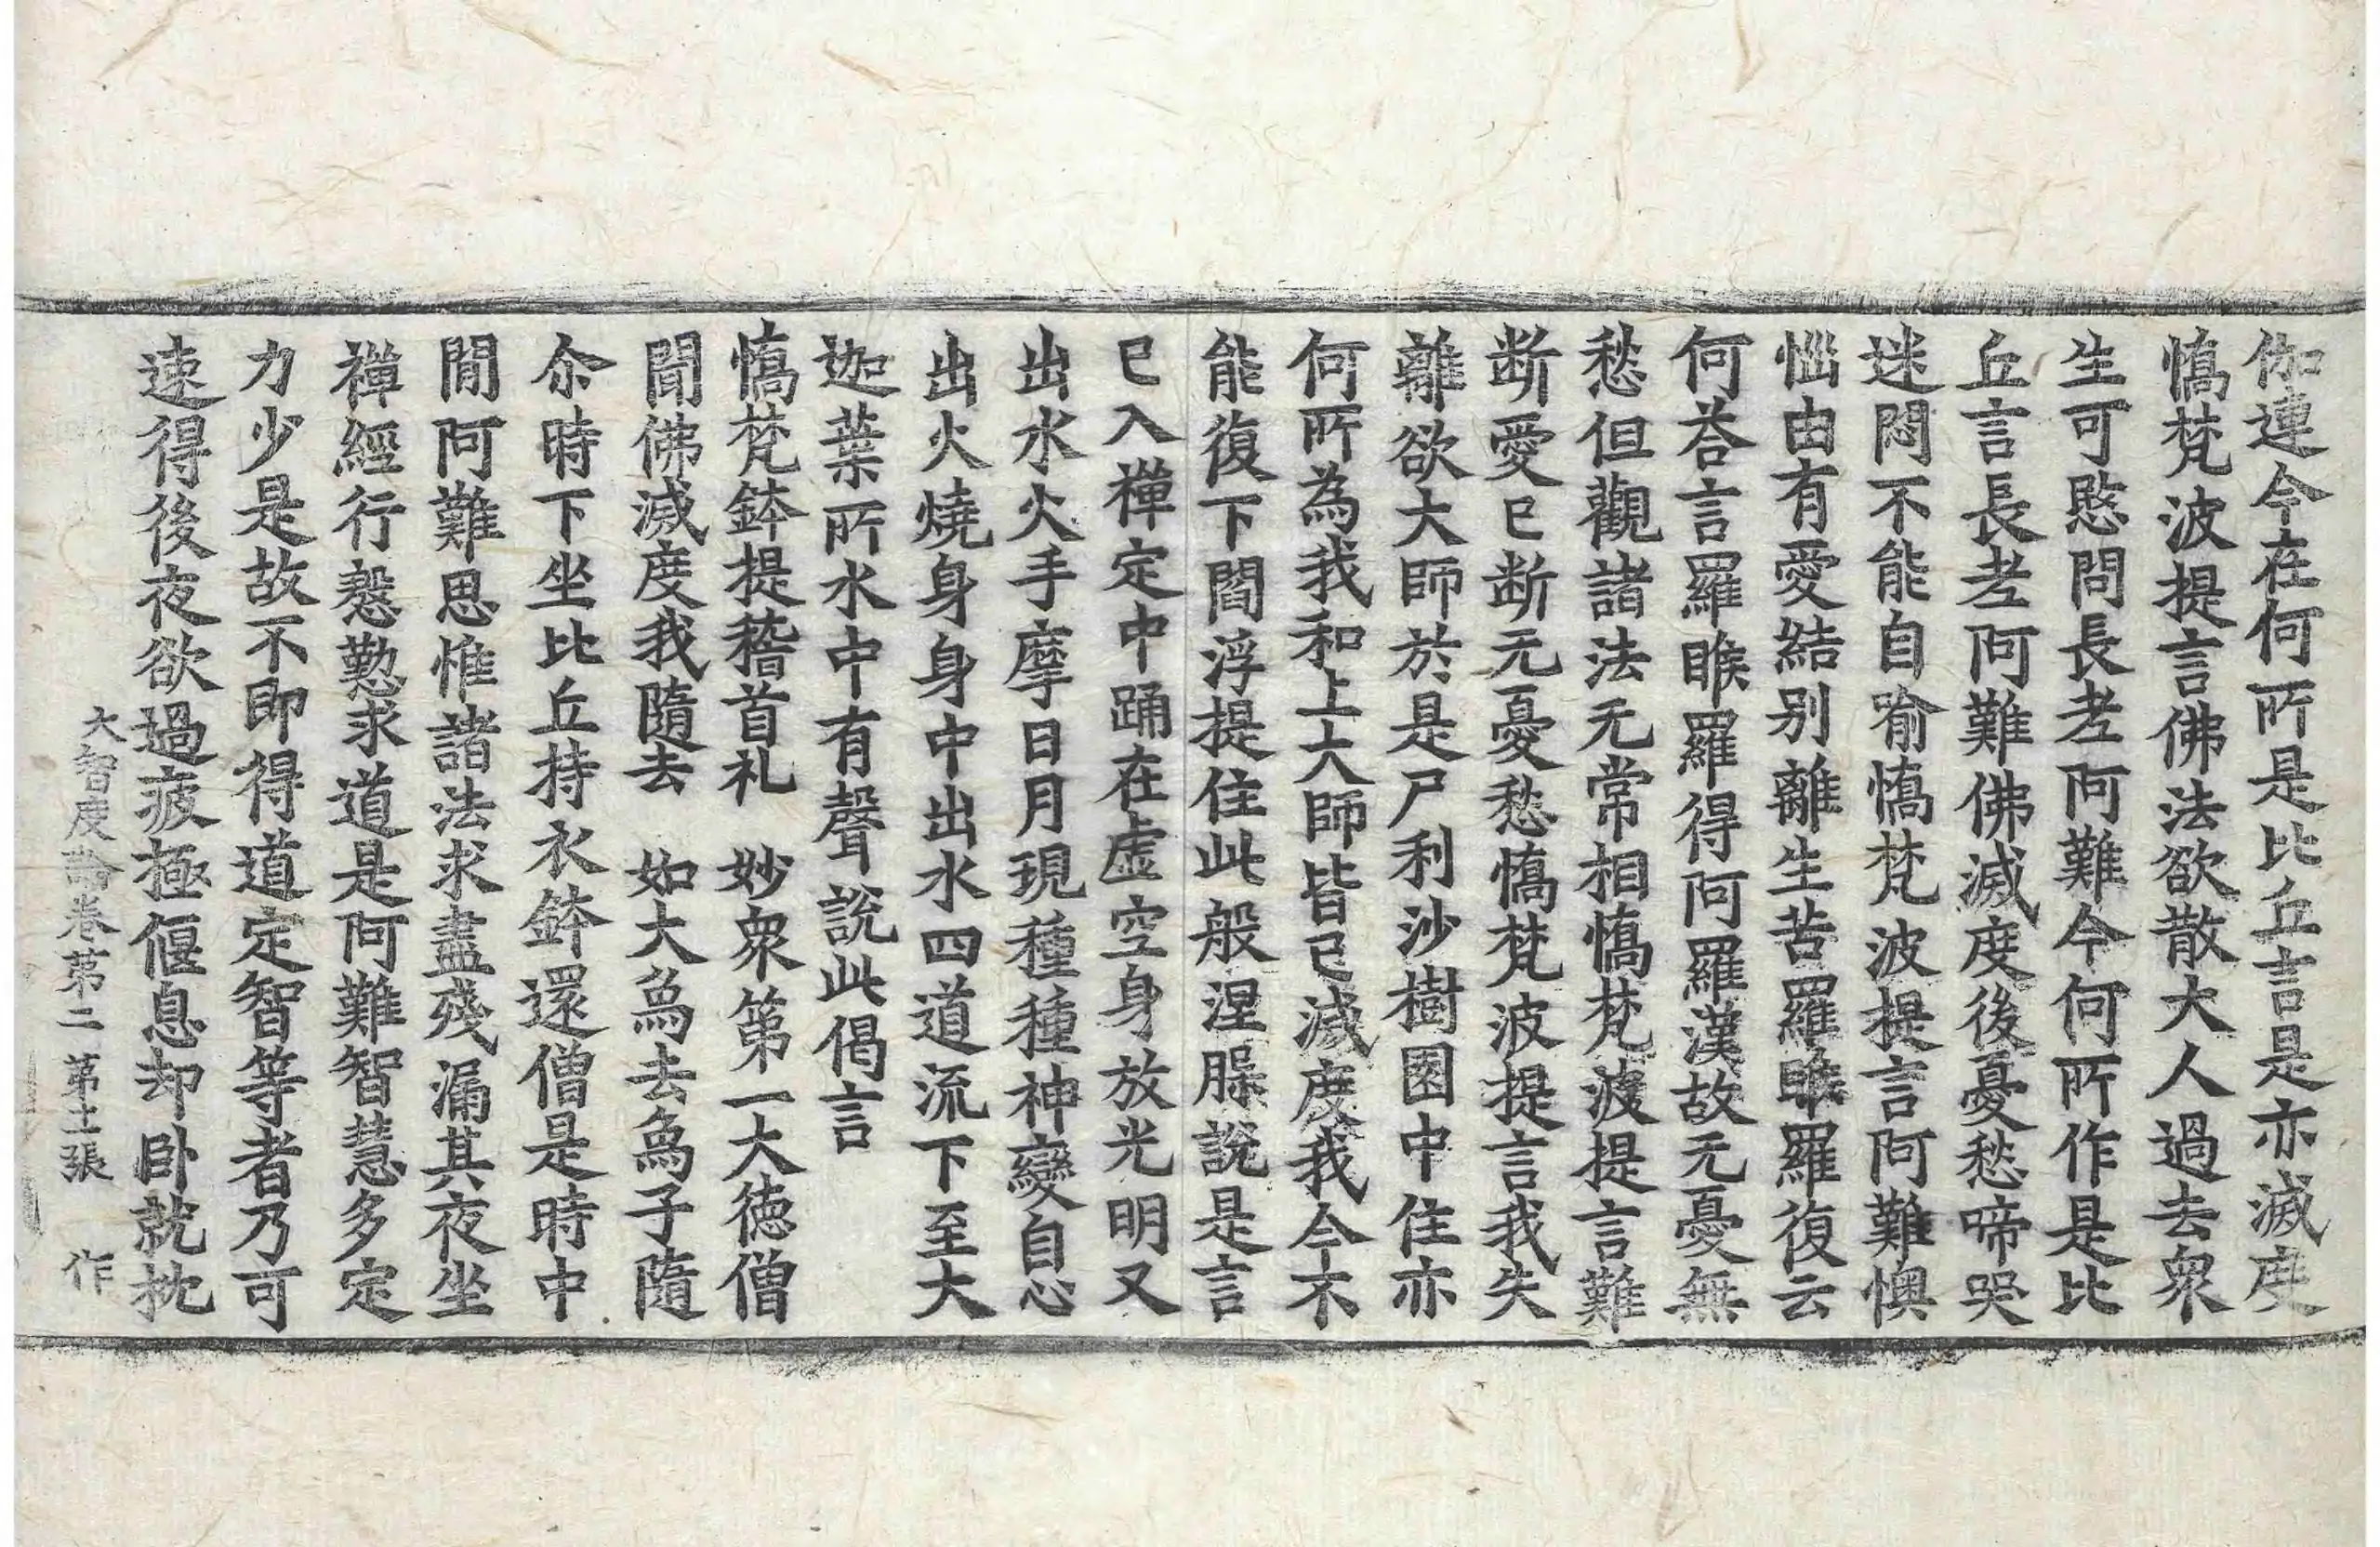 伽連今在何所是比丘言是亦滅度
憍梵波提言佛法欲散大人過去衆
生可愍問長老阿難今何所作是比
丘言長老阿難佛滅度後憂愁啼哭
迷悶不能自喻憍梵波提言阿難懊
惱由有愛結別離生苦羅睺羅復云
何荅言羅睺羅得阿羅漢故无憂無
愁但觀諸法无常相憍梵波提言難
断愛已断无憂愁憍梵波提言我失
離欲大師於是尸利沙樹園中住亦
何所為我和上大師皆已滅度我今不
能復下閻浮提住此般涅槃說是言
已入禪定中踊在虛空身放光明又
出水火手摩日月現種種神變自心
出火燒身身中出水四道流下至大
迦葉所水中有聲說此偈言
憍梵鉢提稽首礼　妙衆第一大德僧
聞佛滅度我隨去　如大鳥去鳥子隨
尒時下坐比丘持衣鉢還僧是時中
間阿難思惟諸法求盡殘漏其夜坐
禪經行慇懃求道是阿難智慧多定
力少是故不即得道定智等者乃可
速得後夜欲過疲極偃息却卧就枕
大智度論卷第二　第士張　作